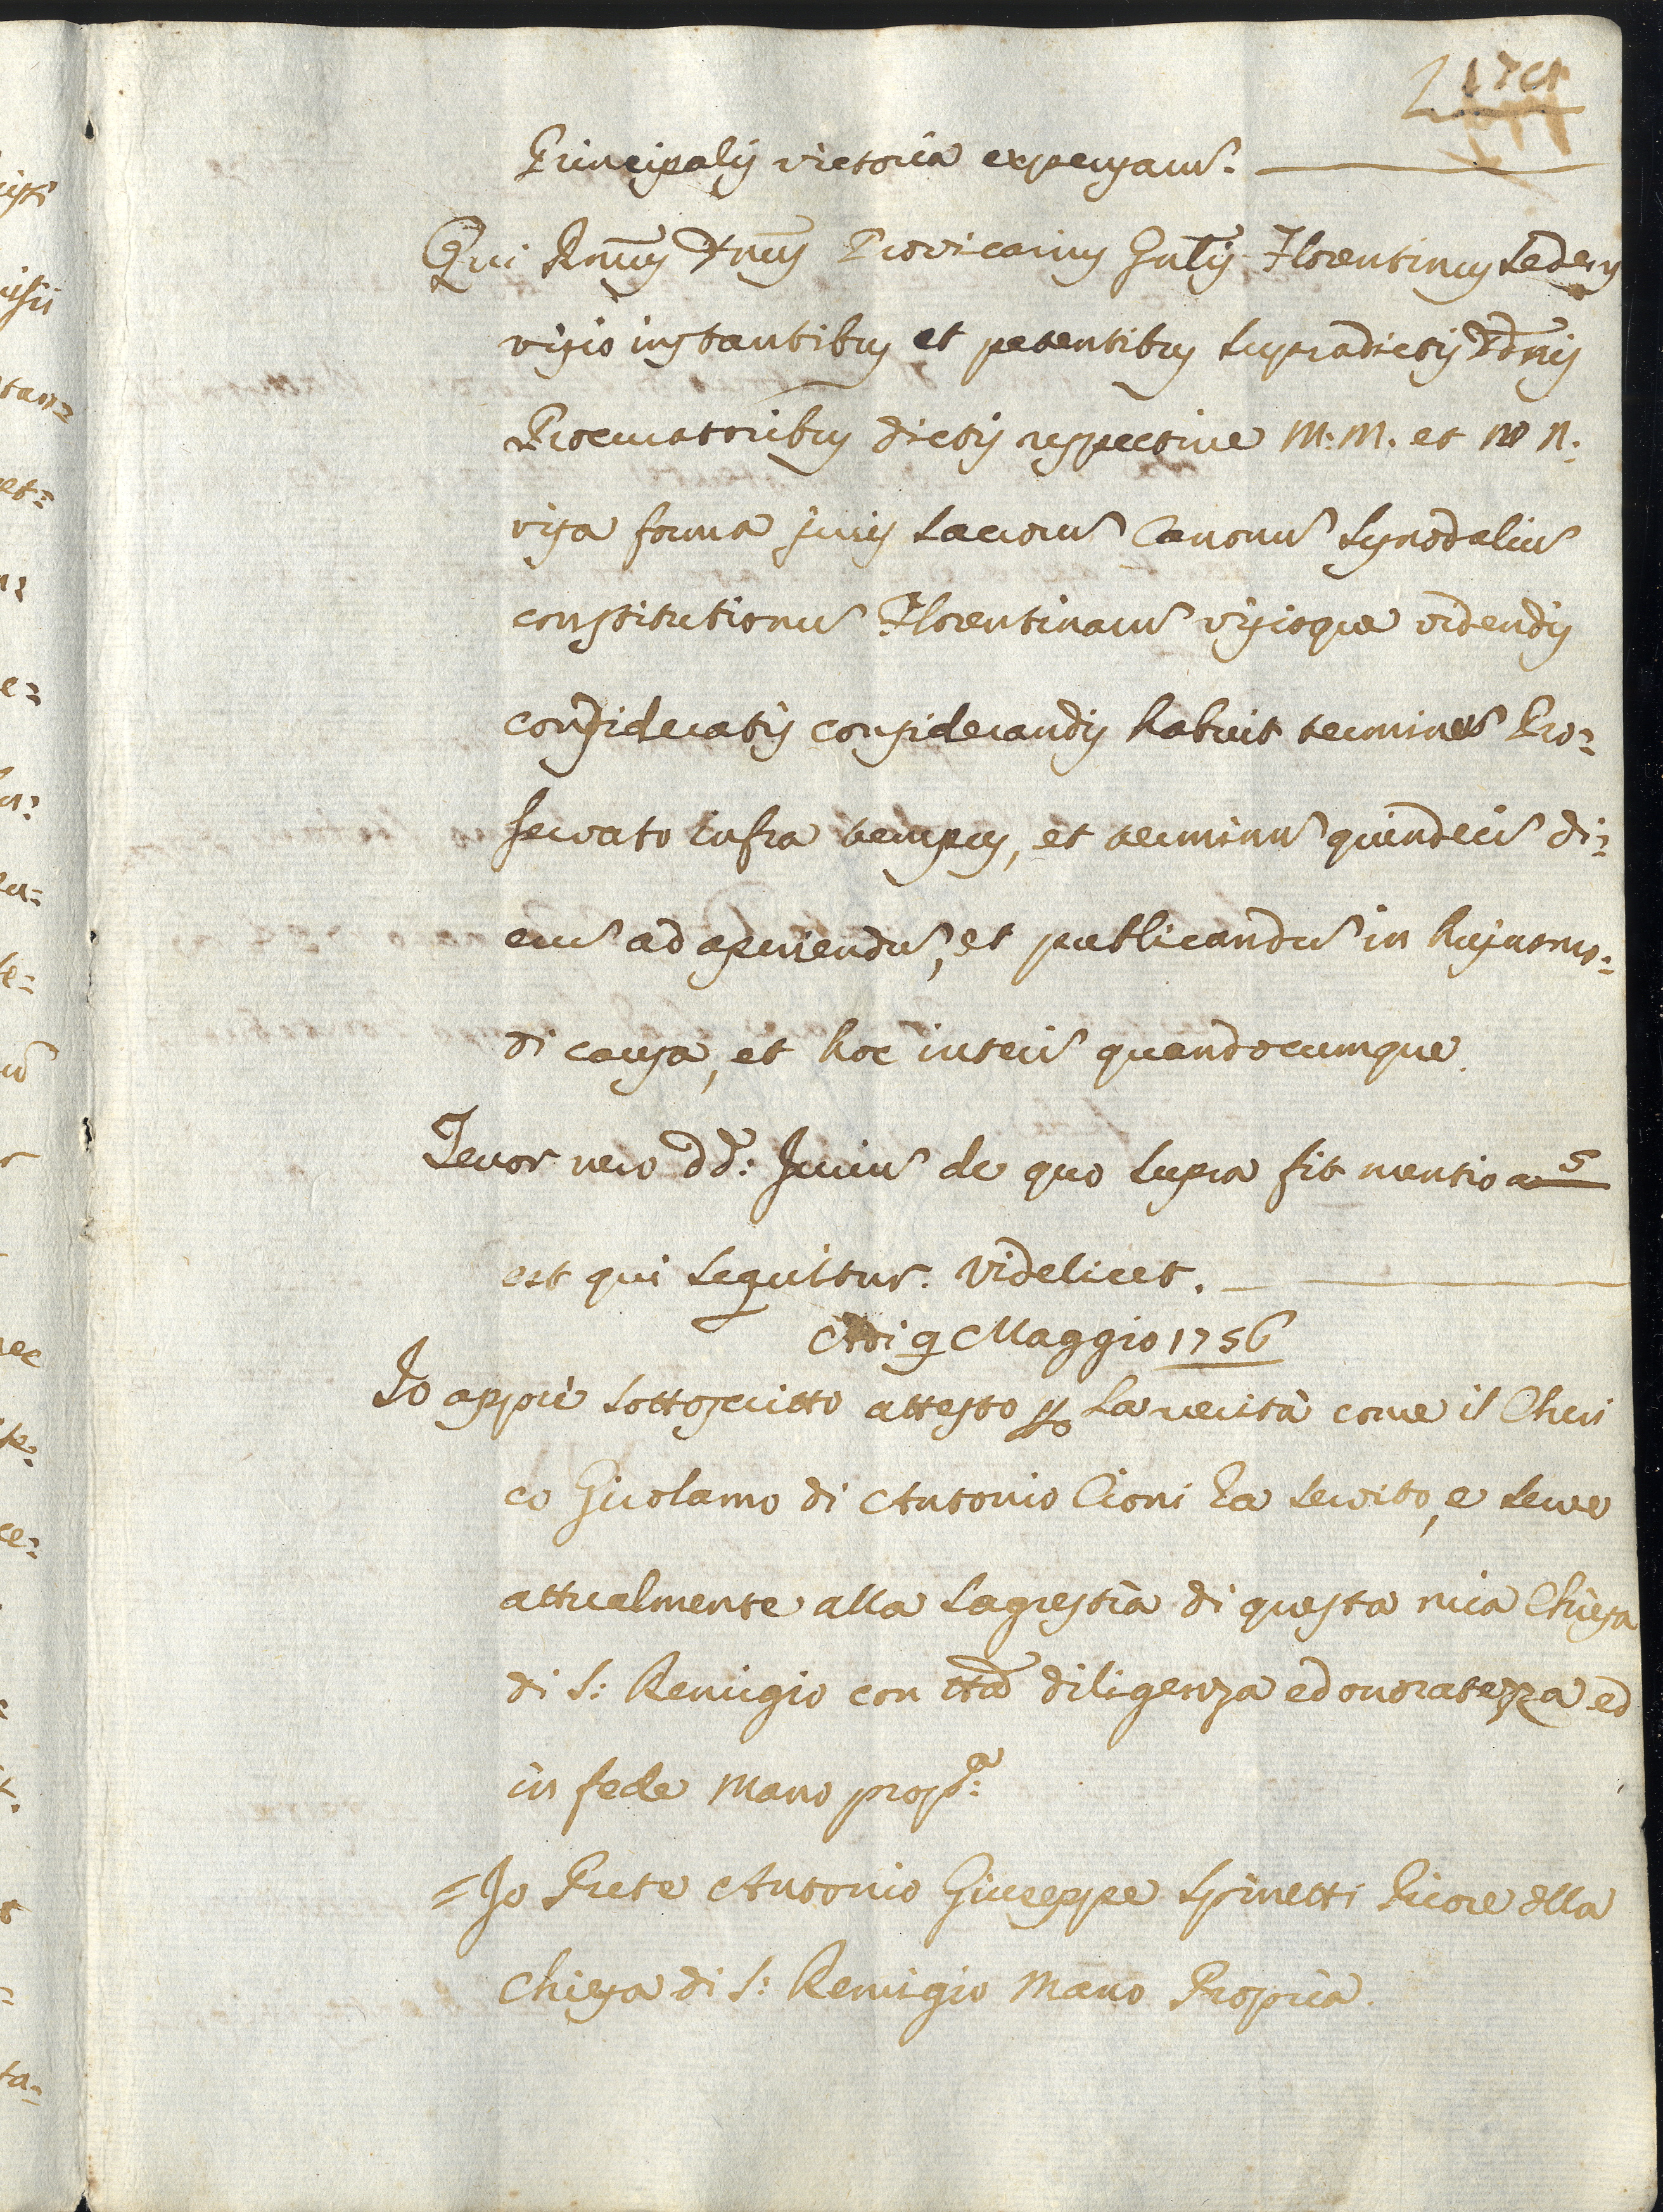 Principalis victoria expensarum.
Qui Rmus Dnus Provicarius Gnlis Florentinus sedens
visis instantibus et petentibus supradictis DDnis
Procuratoribus dictis respective M: M. et N N.
visa forma juris sacrorum Canonum Synodalium
constitutionum Florentinarum visisque videndis
consideratis considerandis habuit terminum Pro=
servato infra tempus, et terminum quindecim di=
erum ad aperiendum, et publicandum in hujusmo=
di causa, et hoc interim quandocumque.
Tenor vero dd: Jurium de quo supra fit mentio
est qui sequitur. Videlicet.
Adi 9 Maggio 1756
Io appiè sottoscritto attesto per la verità come il Cheri
co Girolamo di Antonio Cioni ha servito, e serve
attualmente alla sagrestia di questa mia Chiesa
di S: Remigio con tta diligenza ed onoratezza ed
in fede mano propa:
= Io Prete Antonio Giuseppe Spinetti Priore della
Chiesa di S: Remigio Mano Propria.